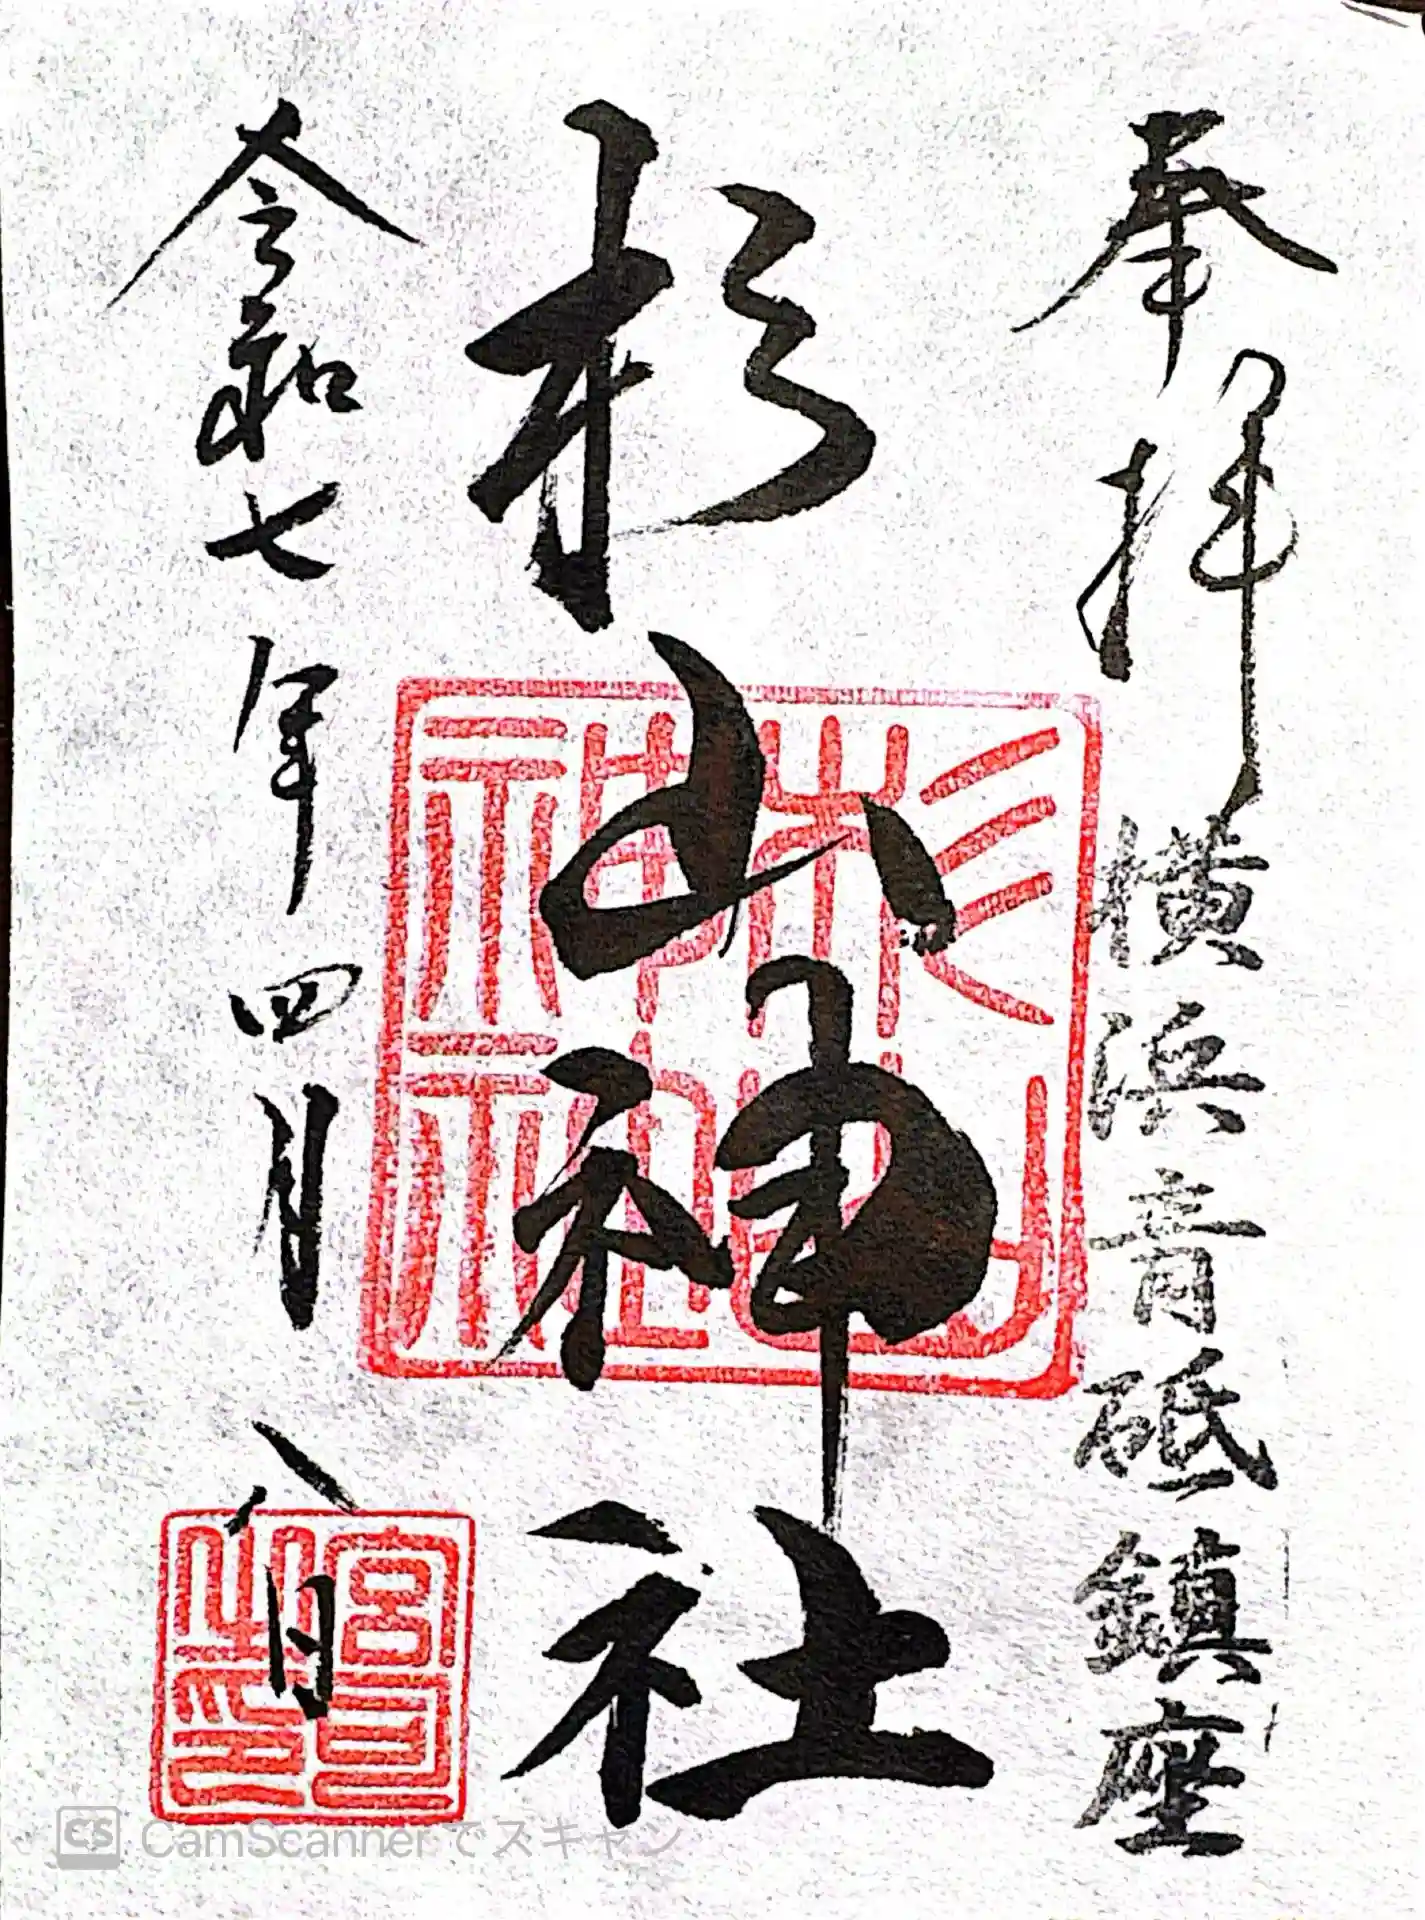 奉拝
横浜青砥鎮座
杉山神社
杉山神社
令和七年四月八日
宮司之印
CS CamScanner でスキャン